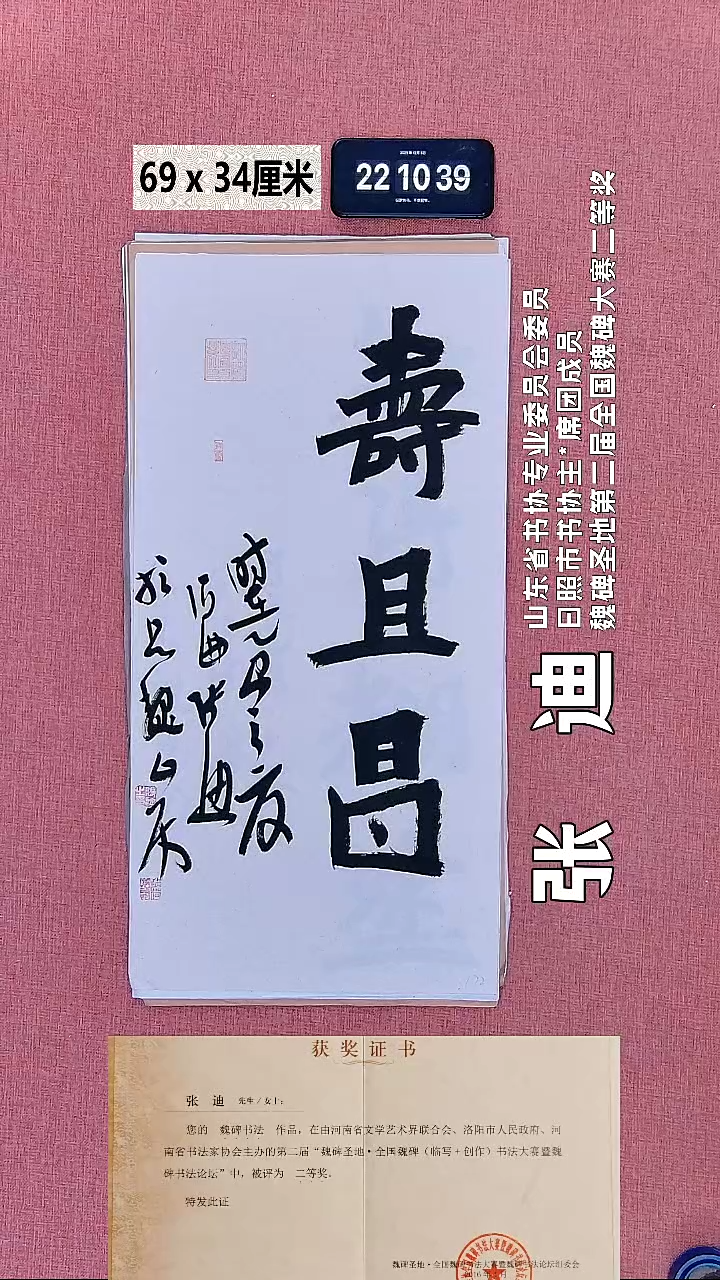 69 x 34厘米
22 10 39
壽且昌
张 迪
山东省书协专业委员会委员
日照市书协主*席团成员
魏碑圣地第二届全国魏碑大赛二等奖
获奖证书
张 迪 先生/女士:
您的 魏碑书法 作品,在由河南省文学艺术界联合会、洛阳市人民政府、河
南省书法家协会主办的第二届“魏碑圣地·全国魏碑(临写+创作)书法大赛暨魏
碑书法论坛”中,被评为 二等奖。
特发此证
魏碑圣地·全国魏碑书法大赛暨魏碑书法论坛组委会